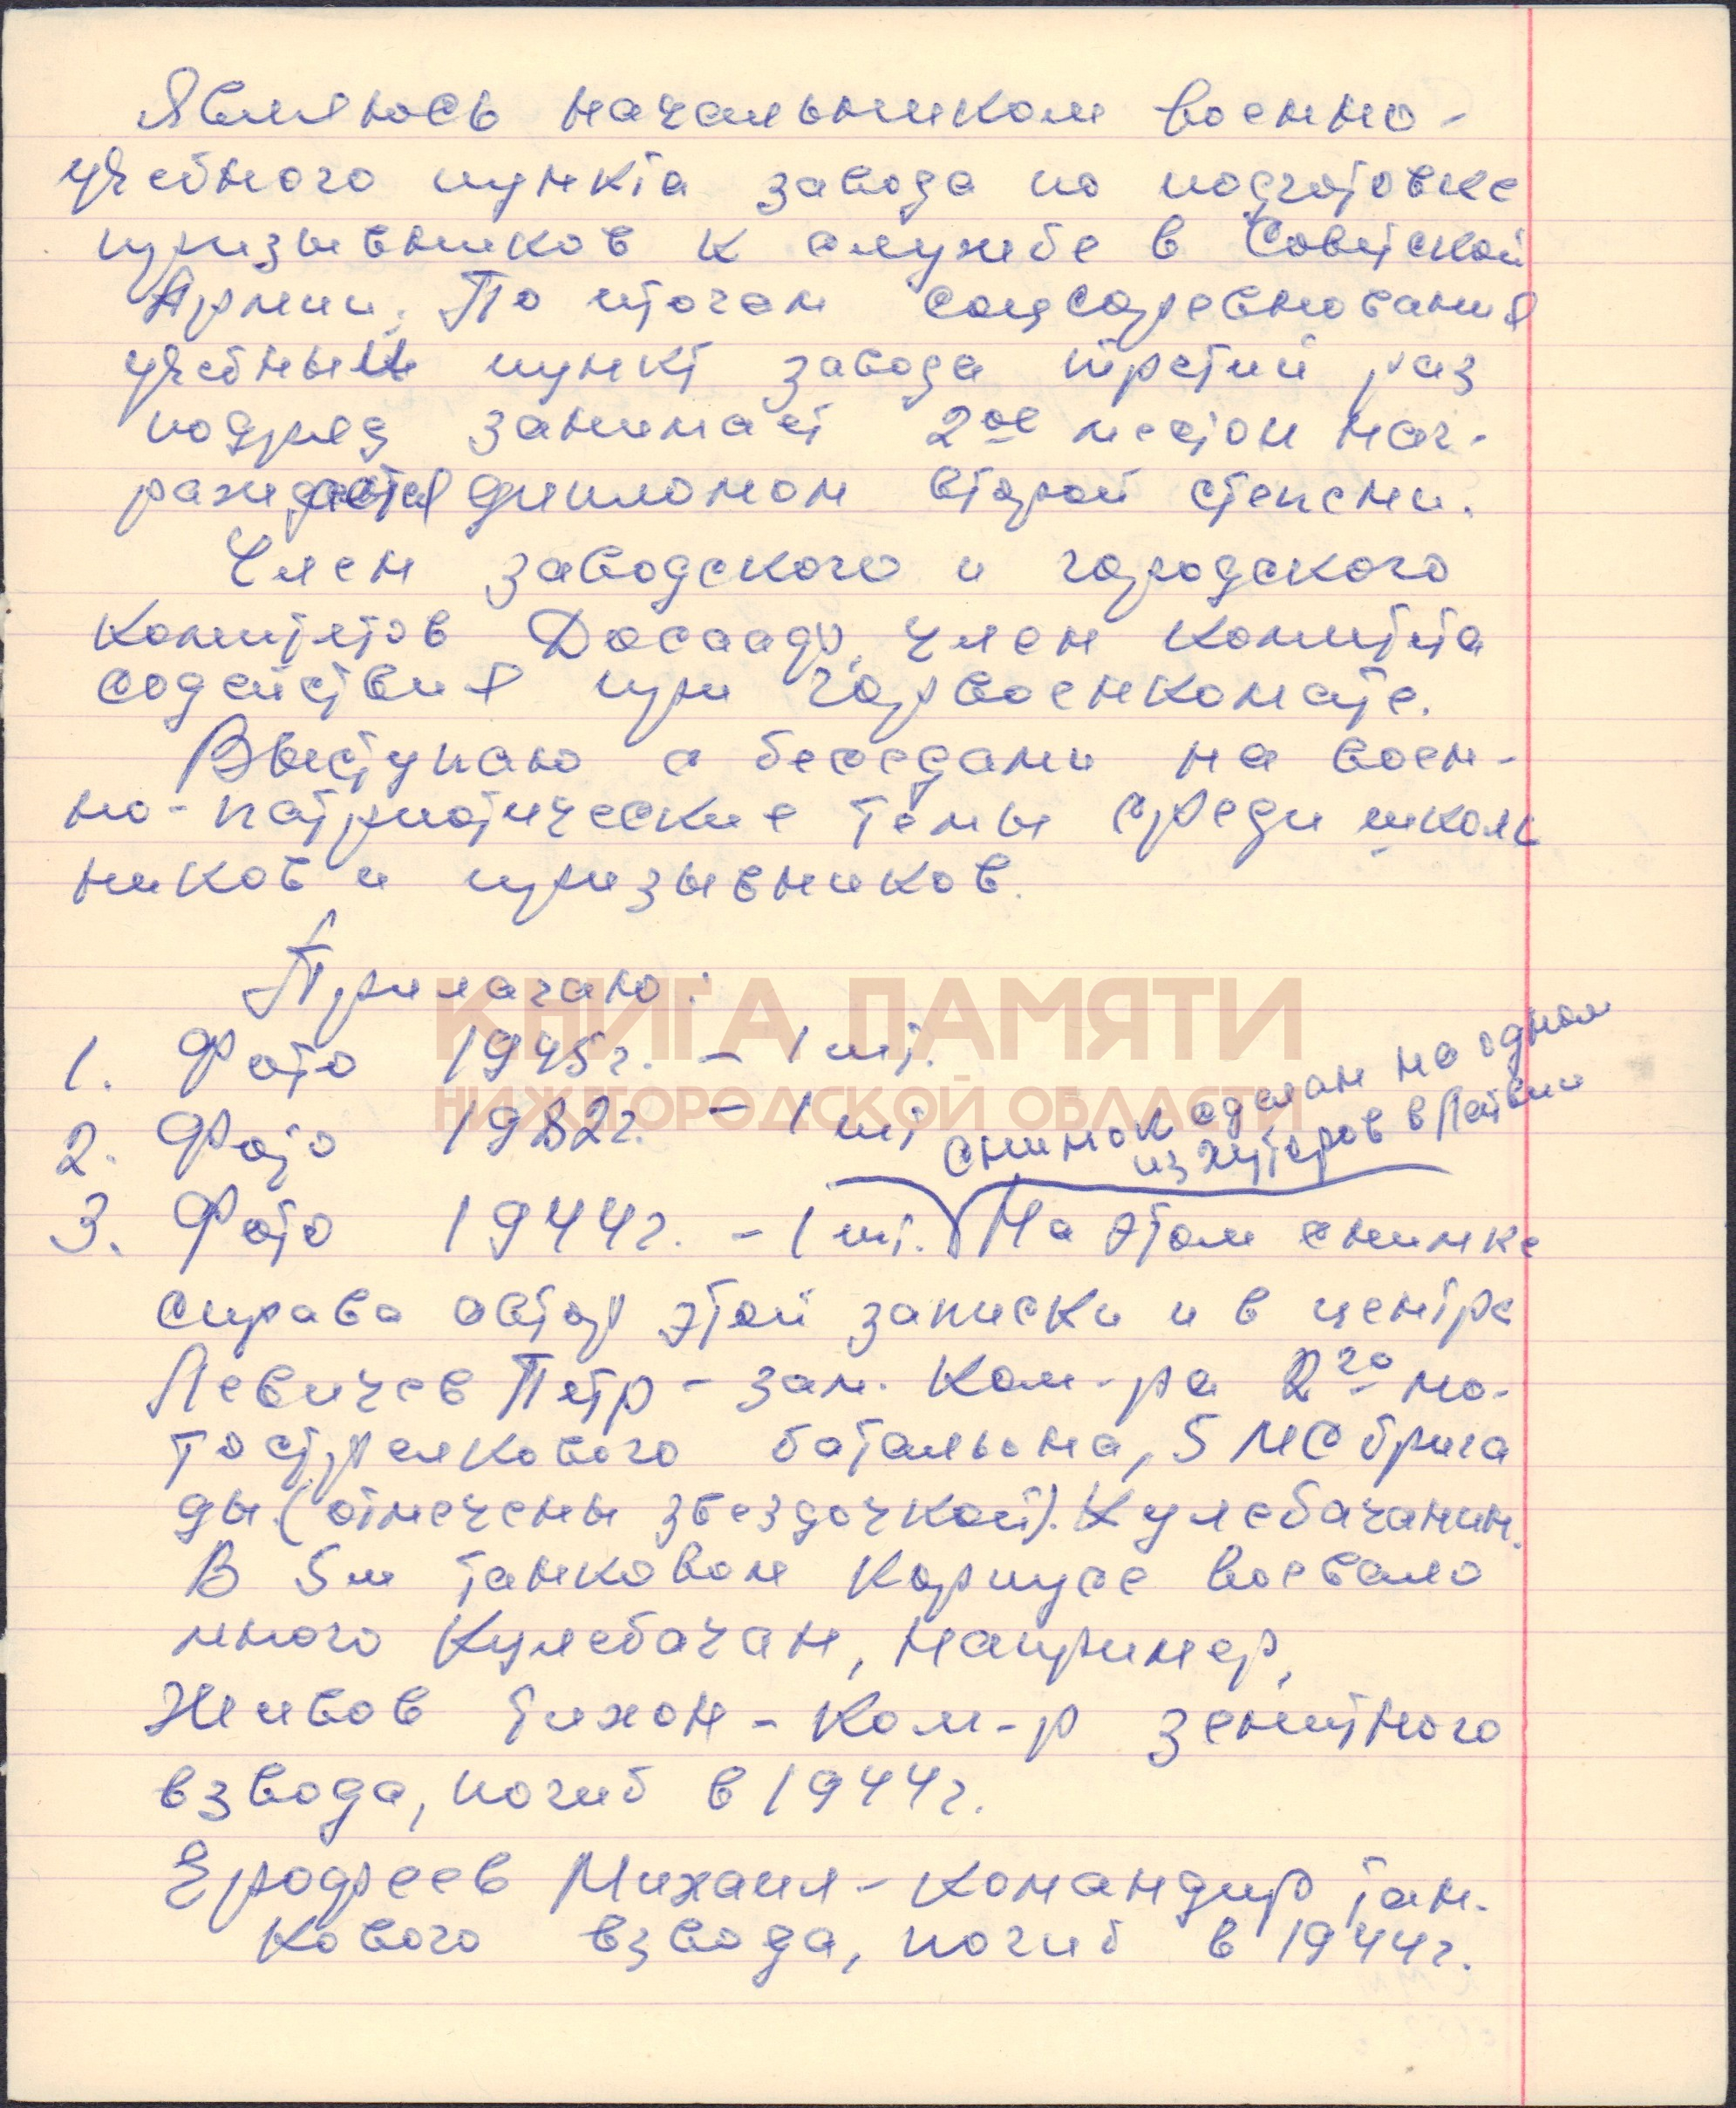 Являюсь начальником военно-
учебного пункта завода по подготовке
призывников к службе в Советской
Армии. По итогам соцсоревнования
учебный пункт завода третий раз
подряд занимает 2ое место и наг-
раждается дипломом второй степени.
Член заводского и городского
комитетов Досааф, член комитета
содействия при горвоенкомате.
Выступаю с беседами на воен-
но-патриотические темы среди школь
ников и призывников.
Прилагаю:
КНИГА ПАМЯТИ
1. Фото 1945г. - 1 шт.
НИЖЕГОРОДСКОЙ ОБЛАСТИ
2. Фото 1982г. - 1 шт
снимок сделан на одном
из хуторов в Латвии
3. Фото 1944г. - 1 шт. На этом снимке
справа автор этой записки и в центре
Левичев Петр - зам. ком-ра 2го мо-
тострелкового батальона, 5 МС брига
ды (отмечены звездочкой). Кулебачанин.
В 5м танковом корпусе воевало
много Кулебачан, например,
Живов Тихон - ком-р зенитного
взвода, погиб в 1944г.
Ерофеев Михаил - командир тан-
кового взвода, погиб в 1944г.